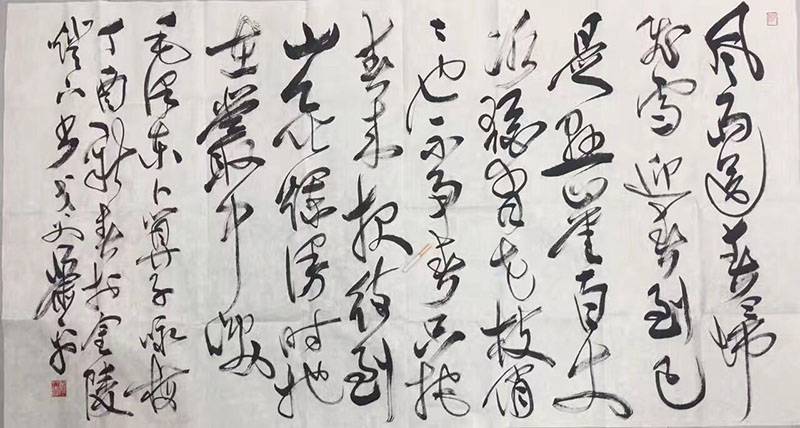 风雨送春歸
飞雪迎春到已
是悬崖百丈
冰犹有花枝俏
〻也不争春只把
春来报待到
山花烂漫时她
在叢中笑
毛泽东卜算子咏梅
丁酉新春于金陵
灯下书